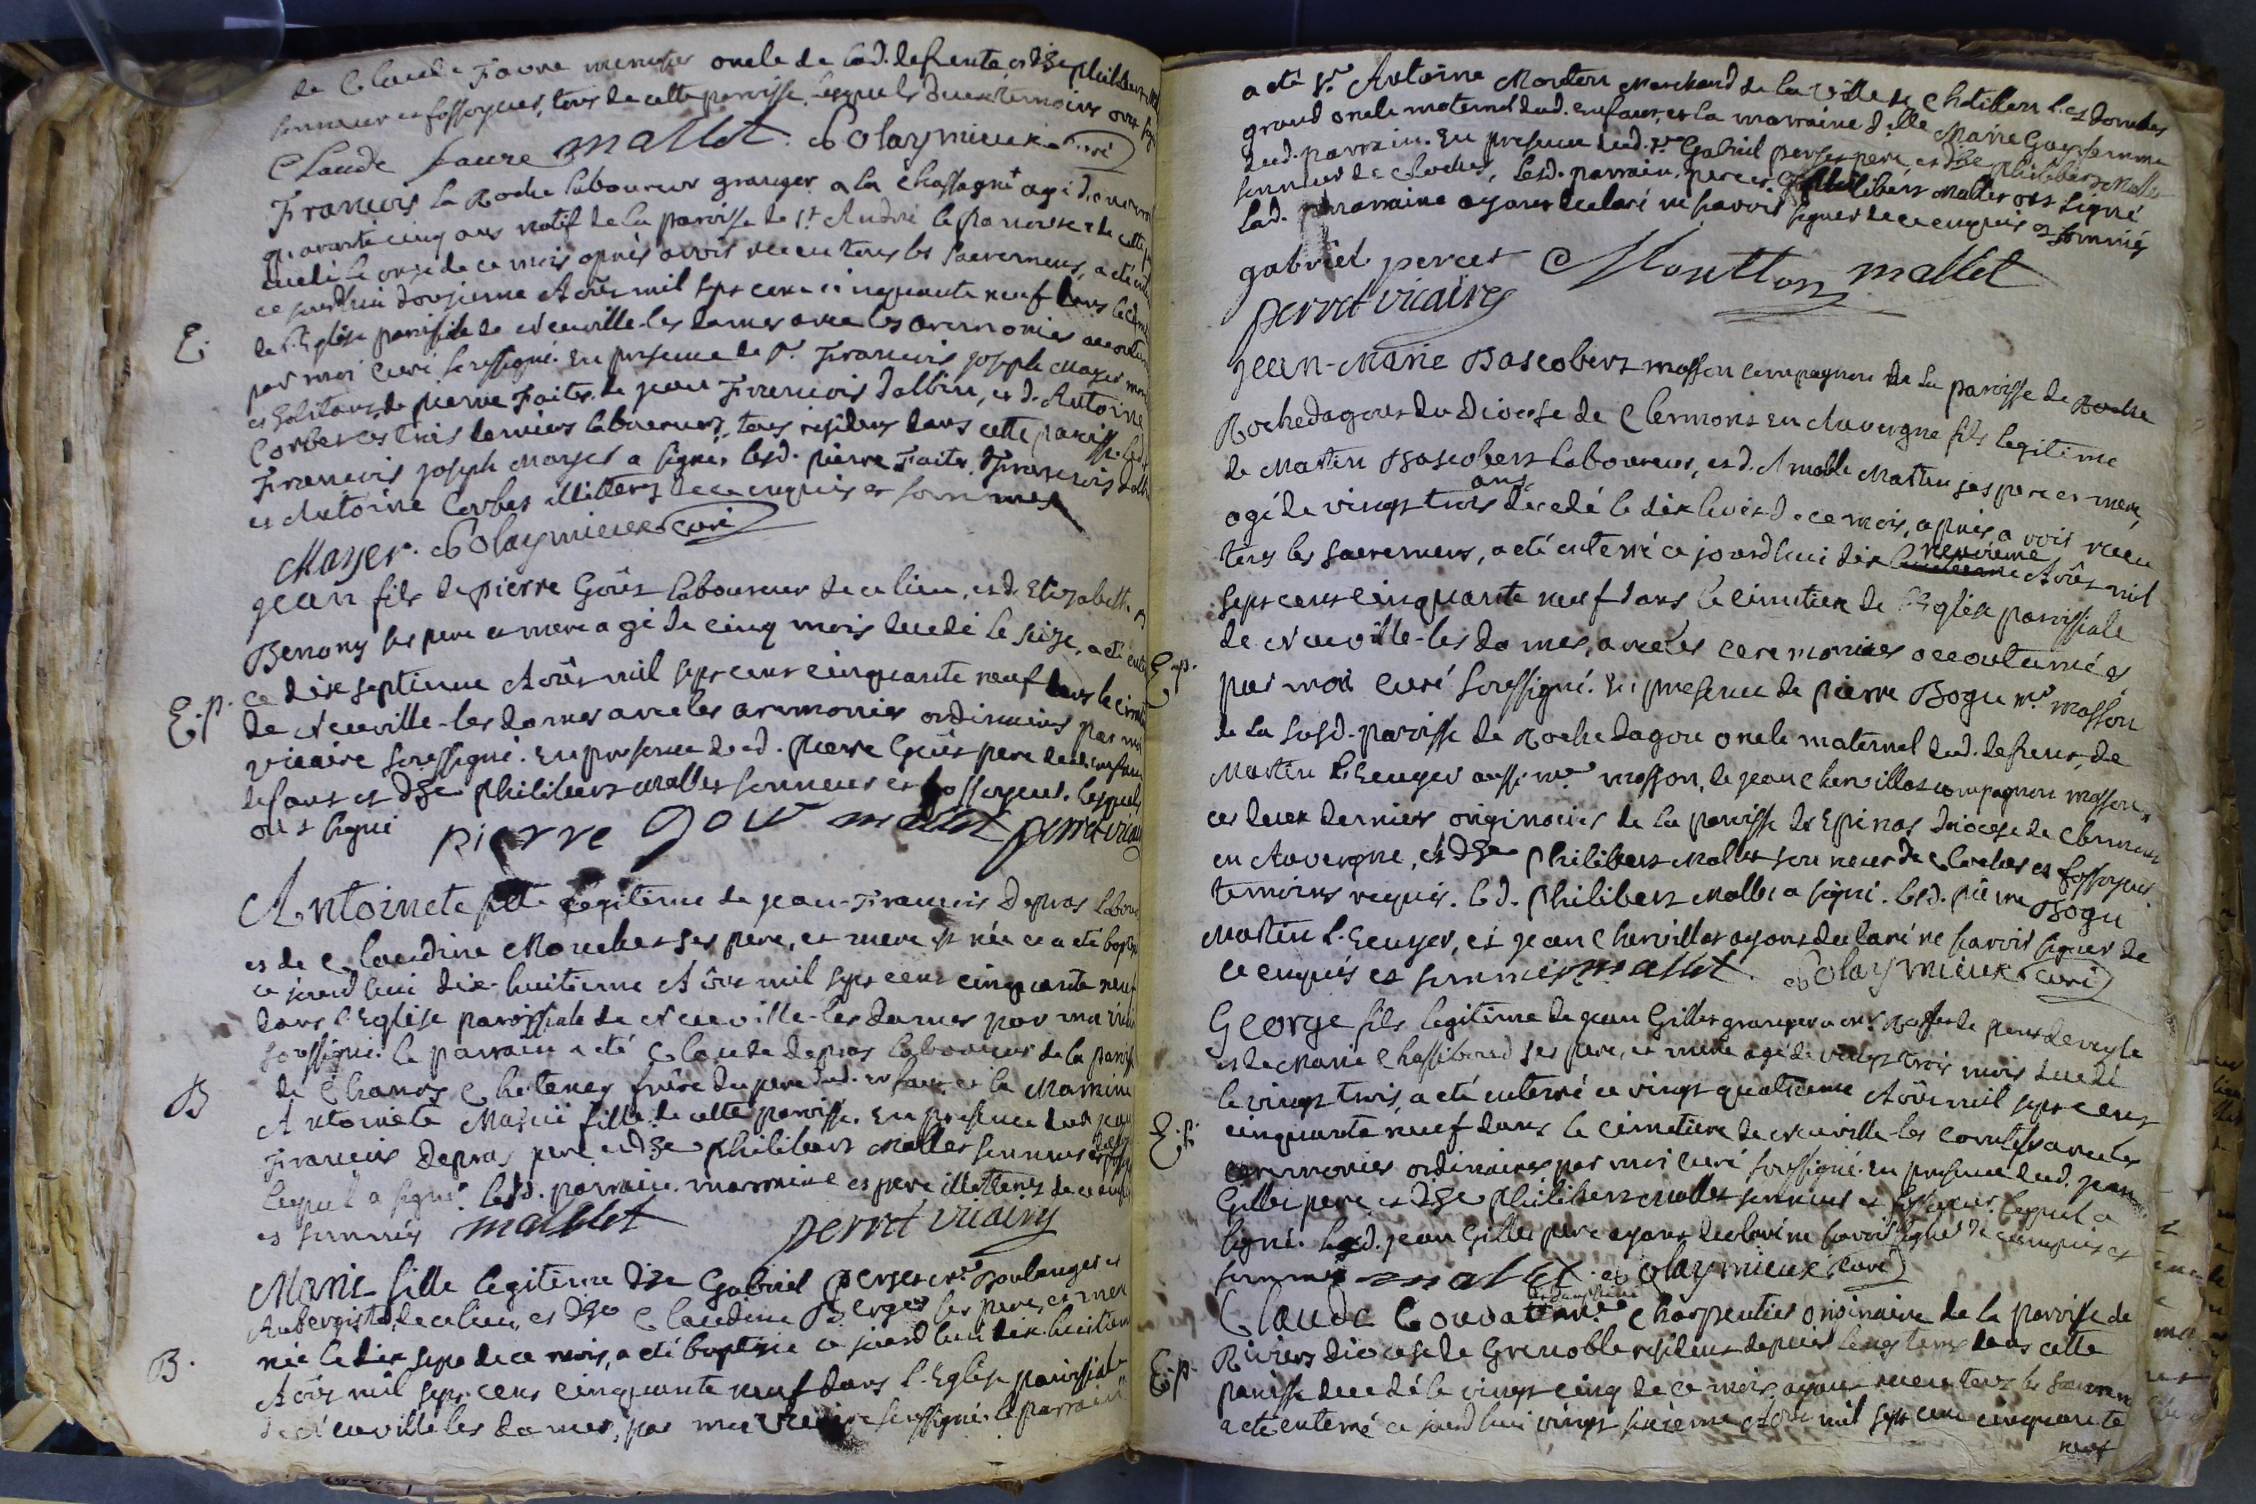 de Claude Favre menusier oncle de lad. defunte et d'h.e philibert
sonneur et fossoyeur, tous de cette paroisse, lesquels deux temoins ont
Claude faure mallet Dolaymieux curé
François la Roche laboureur granger a la Chassagne agé d'environ
quarante cinq ans natif de la paroisse de St. André le panoux & de cette
decedé le onze de ce mois après avoir receu tous les sacremens, a été
ce jourd'hui douzieme Aôut mil sept cent cinquante neuf dans le
E. de l'Eglise parrissiale de Neuville-les dames avec les ceremonies
par moi curé soussigné. En presence de Sr. François joseph Mayer
de pierre Faite, de jean François dalbin, et d'Antoine
Corbet ces trois derniers laboureurs, tous residens dans cette paroisse. led.
François joseph Mayer a signé, lesd. pierre Faite, François
et Antoine Corbet illitterez de ce enquis et sommés
Mayer. Dolaymieux curé
jean fils de pierre Goût laboureur de ce lieu, et d. Elizabeth
Benony ses pere et mere agé de cinq mois decedé le seize, a été
E.p. ce dix septieme Aôut mil sept cent cinquante neuf dans le
de Neuville-les dames avec les ceremonies ordinaires par
vicaire soussigné. En presence dud. pierre Goût pere dud. enfant
defunt et d'h.e philibert mallet sonneur et fossoyeur, lesquels
ont signé pierre gout mallet perret vicaire
Antoinete fille legitime de jean-François Depras
et de Claudine Mouchet ses pere, et mere est née et a été
ce jourd'hui dix-huitieme Aôut mil sept cent cinquante neuf
dans l'Eglise paroissiale de Neuville-les dames par moi
soussigné. le parrain a été Claude depras laboureur de la
B de Chanos Chatenay frère du pere dud. enfant et la
Antoinete fille de cette paroisse. En presence dud.
François Depras pere, et d'h.e philibert Mallet sonneur
lequel a signé. lesd. parrain, marraine et pere illetterés de ce
et sommés mallet perret vicaire
Marie fille legitime d'h.e Gabriel perset me. Boulanger et
Aubergiste, de ce lieu, et d'h.e Claudine Berger ses pere, et mere
née le dix sept de ce mois, a été baptisée ce jourd'hui dix-huitieme
B. Aôut mil sept cent cinquante neuf dans l'Eglise paroissiale
de Neuville les dames, par moi vicaire soussigné. le parrain
a été Sr. Antoine Mouton Marchand de la ville de Chatillon les dombes
grand oncle maternel dud. enfant, et la marraine d.elle Marie femme
dud. parrain. En presence dud. Sr. Gabriel perset pere, et d'h.e philibert Mallet
sonneur de cloches, lesd. parrain, pere et philibert Mallet ont signé
lad. marraine ayant declaré ne savoir signer de ce enquis et sommés
gabriel perset Moutton mallet
perret vicaire
jean-Marie Bascobert masson compagnon de la paroisse de Roche
Rochedagout du Diocese de Clermont en Auvergne fils legitime
de Martin Bascobert laboureur, et d. Amable Martin ses pere et mere,
agé de vingt trois ans decedé le dix huit de ce mois, après avoir receu
tous les sacremens, a été enterré ce jourd'hui dix neuvieme Aôut mil
sept cent cinquante neuf dans le cimetiere de l'Eglise paroissiale
E.p. de Neuville-les dames, avec les ceremonies accoutumées
par moi curé soussigné. En presence de pierre Bogu me. masson
de la susd. paroisse de Rochedagou oncle maternel dud. defunt, de
Martin l'Ecuyer aussi me. masson, de jean Chervillat compagnon masson,
ces deux derniers originaires de la paroisse de Epinas diocese de Clermont
en Auvergne, et d'h.e philibert Mallet sonneur de cloches et fossoyeur
temoins requis. led. philibert Mallet a signé. lesd. pierre Bogu
Martin l'Ecuyer, et jean Chervillat ayant declaré ne savoir signer de
ce enquis et sommés mallet. Dolaymieux curé
George fils legitime de jean Gillet granger
et de Marie ses pere, et mere agé de vingt trois mois decedé
le vingt trois, a été enterré ce vingt quatrieme Aôut mil sept cent
E.p. cinquante neuf dans le cimetiere de Neuville les comtesses avec les
ceremonies ordinaires par moi curé soussigné. En presence dud. jean
Gillet pere et d'h.e philibert mallet sonneur et fossoyeur, lequel a
signé. led. jean Gillet pere ayant declaré ne savoir signer de ce enquis et
sommé mallet. Dolaymieux curé
en Dauphiné
Claude Couvat me. Charpentier originaire de la parroisse de
E.p. Riviers diocese de Grenoble residant depuis longtems dans cette
paroisse decedé le vingt cinq de ce mois, ayant receu tous les
a été enterré ce jourd'hui vingt sixieme Aôut mil sept cent cinquante
neuf